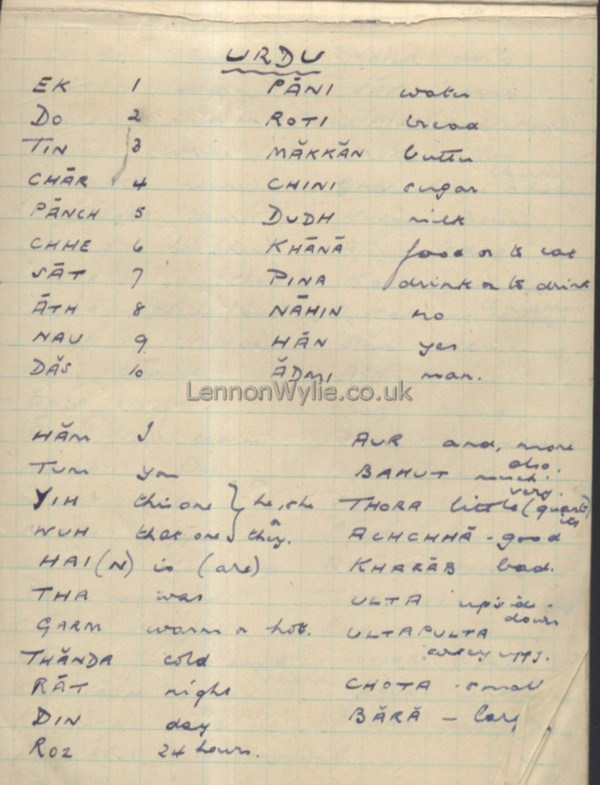 URDU
EK 1 PĀNI water
DO 2 ROTI bread
TIN 3 MĂKKĂN butter
CHĀR 4 CHINI sugar
PĀNCH 5 DUDH milk
CHHE 6 KHĀNĀ food or to eat
SĀT 7 PINA drink or to drink
ĀTH 8 NĀHIN no
NAU 9 HĀN yes
DĂS 10 ĂDMI man.
LennonWylie.co.uk
HĂM I AUR and, more
also.
TUM you BAHUT much
very.
YIH this one } he, she THORA little (quantities
WUH that one } they. ACHCHHĀ - good
HAI (N) is (are) KHARĀB bad.
THA was ULTA upside-
down
GARM warm or hot. ULTAPULTA
THĂNDA cold
RĀT night CHOTA - small
DIN day BĂRĀ -
ROZ 24 hours.